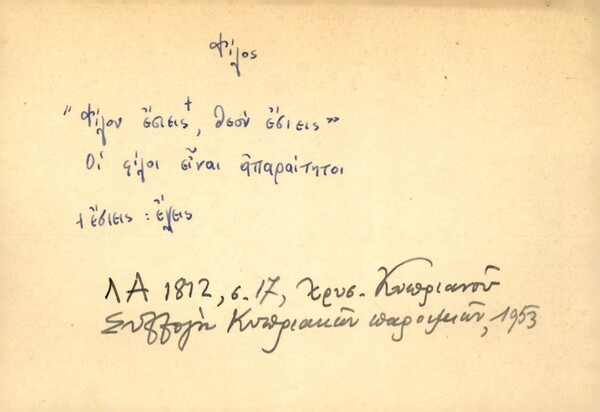 Φίλος
"Φίλον ἔσιεις+, θεόν ἔσιεις»
Οἱ φίλοι εἶναι ἀπαραίτητοι
+ ἔσιεις : ἔχεις
ΛΑ 1812, σ. 17, Χρυσ. Κυπριανοῦ
Συλλογὴ Κυπριακῶν παροιμιῶν, 1953